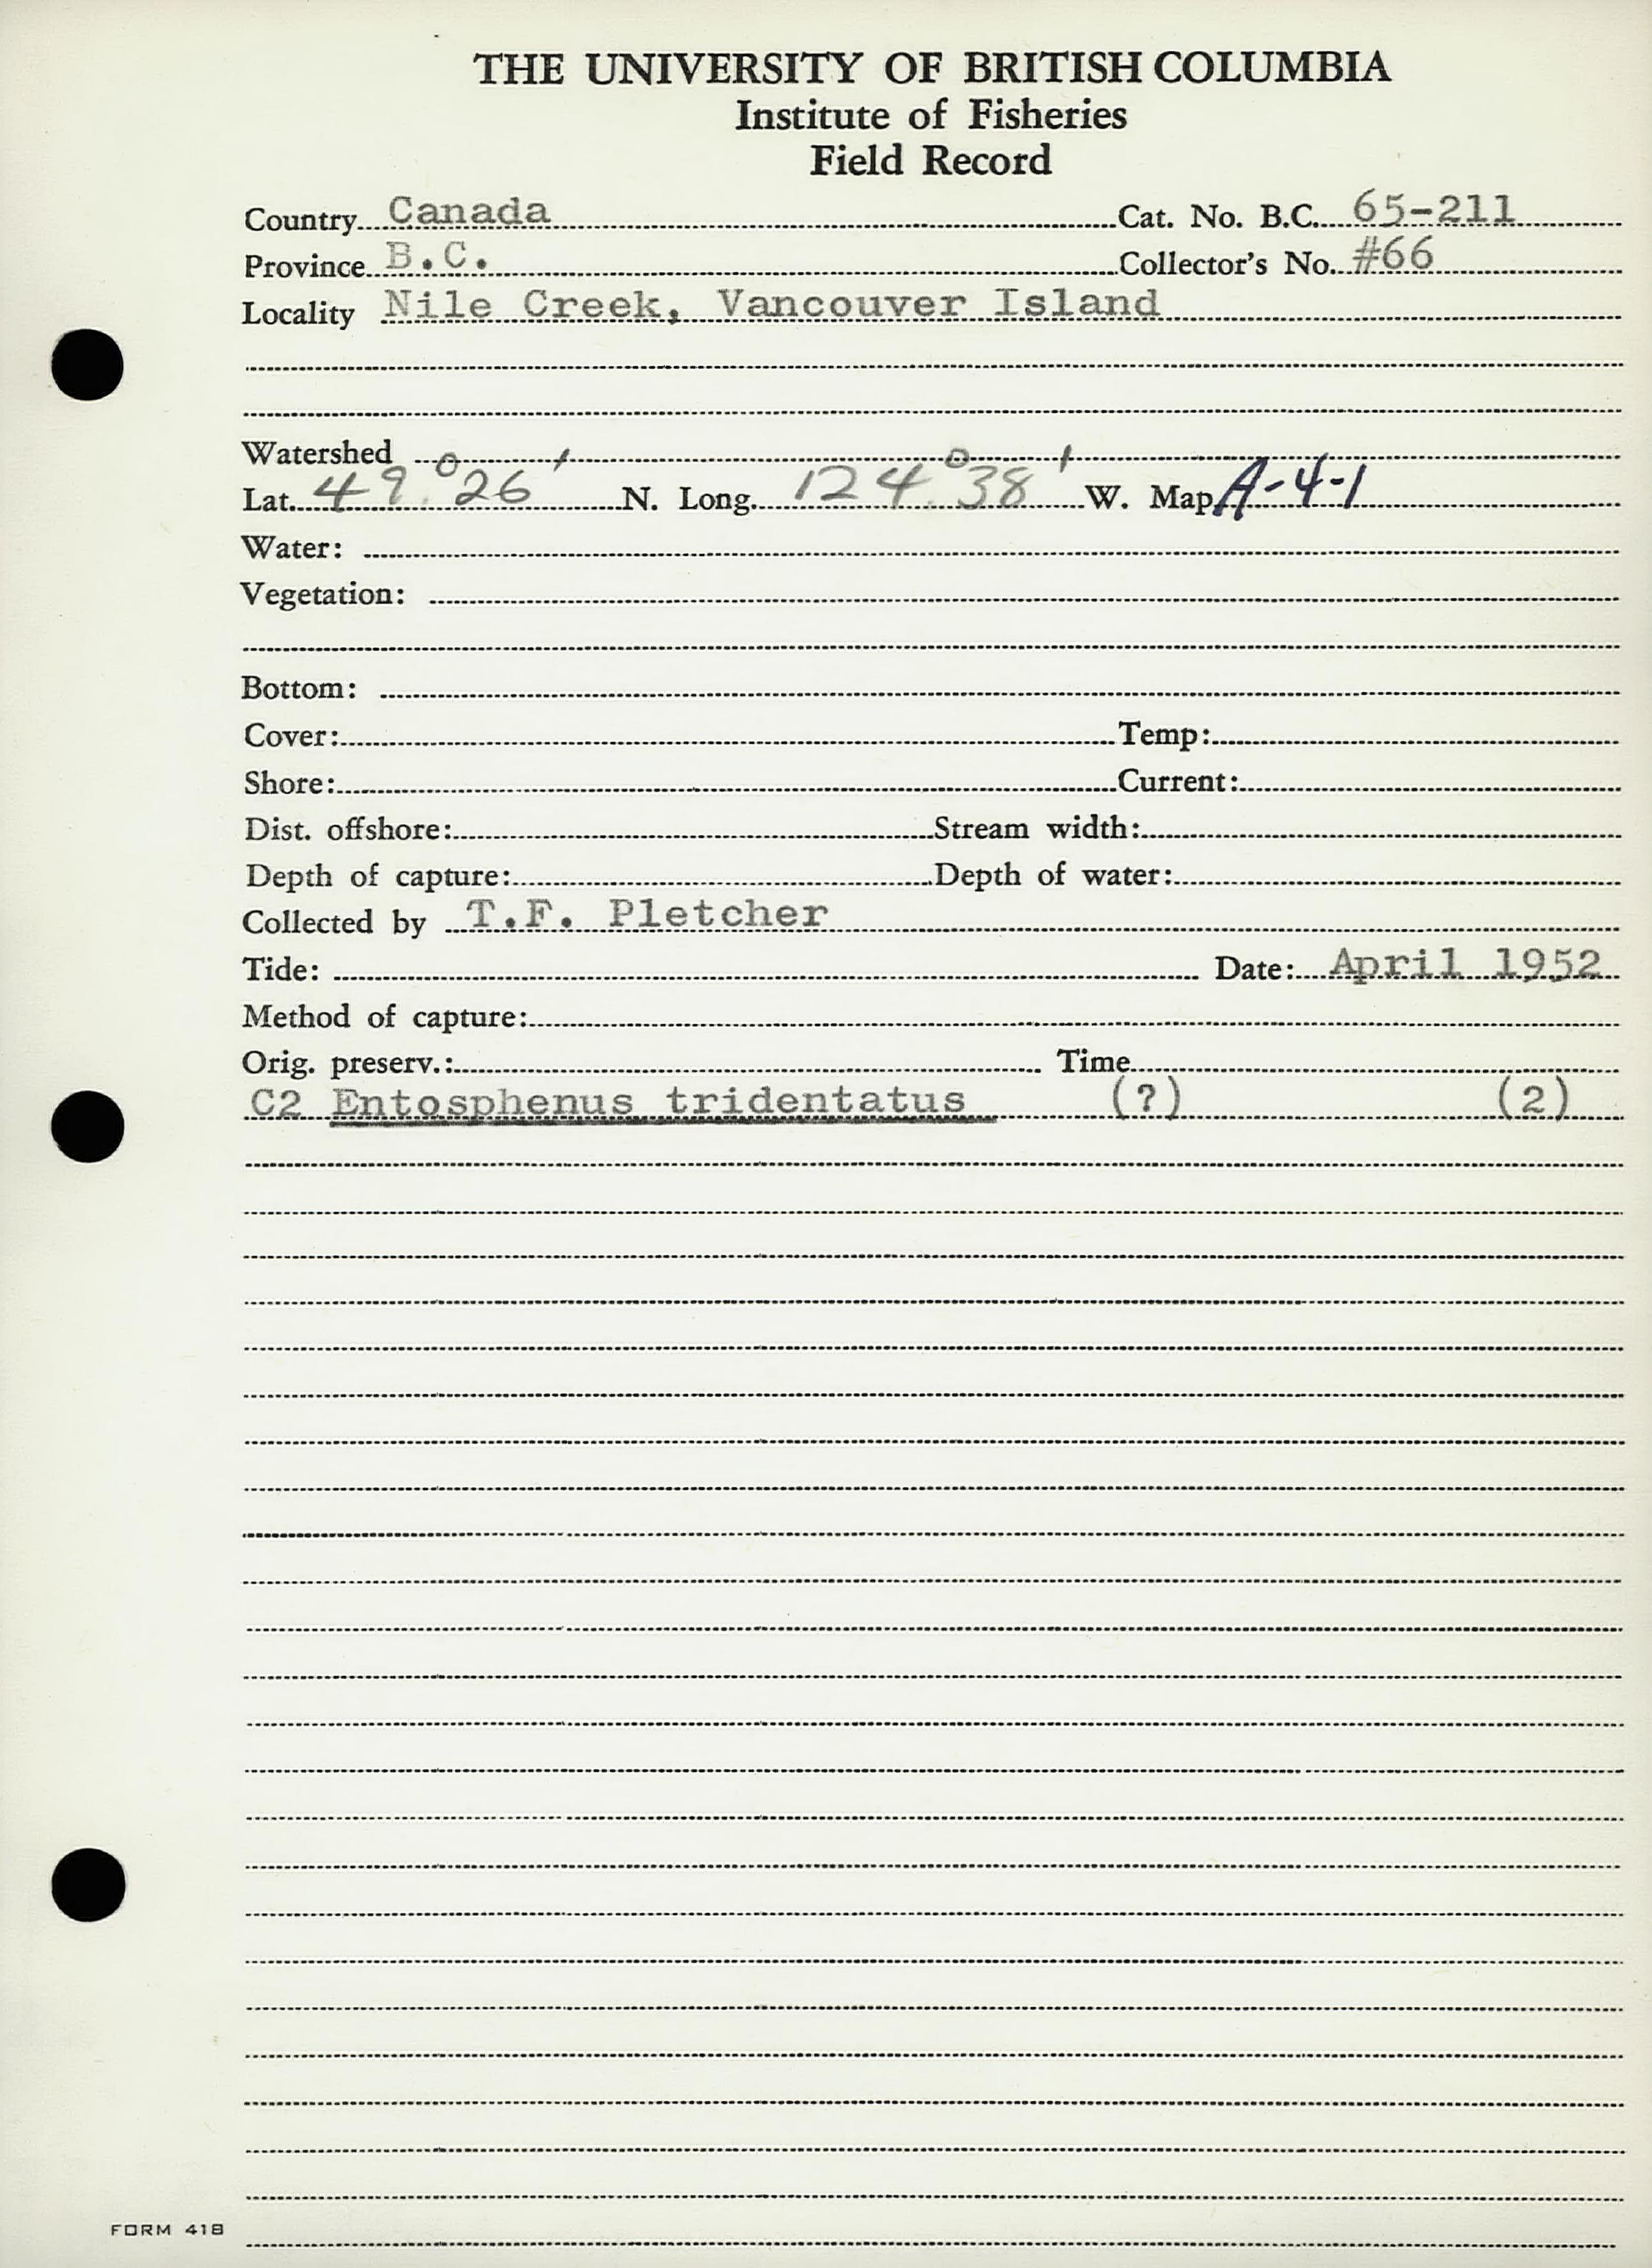 THE UNIVERSITY OF BRITISH COLUMBIA
Institute of Fisheries
Field Record
Country Canada Cat. No. B.C. 65-211
Province B.C. Collector's No. #66
Locality Nile Creek, Vancouver Island
Watershed
Lat. 49°26' N. Long. 124°38' W. Map A-4-1
Water:
Vegetation:
Bottom:
Cover: Temp:
Shore: Current:
Dist. offshore: Stream width:
Depth of capture: Depth of water:
Collected by T.F. Pletcher
Tide: Date: April 1952
Method of capture:
Orig. preserv.: Time
C2 Entosphenus tridentatus (?) (2)
FORM 418